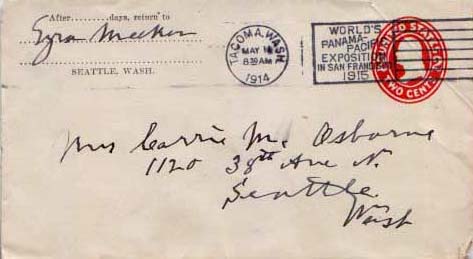 After.........days, return to
Ezra Meeker
SEATTLE, WASH.
TACOMA, WASH.
MAY 1
8:30 AM
1914
WORLD'S
PANAMA-
PACIFIC
EXPOSITION
IN SAN FRANCISCO
1915
UNITED STATES
TWO CENTS
Mrs Carrie M. Osborne
1120 38th Ave N.
Seattle
Wash